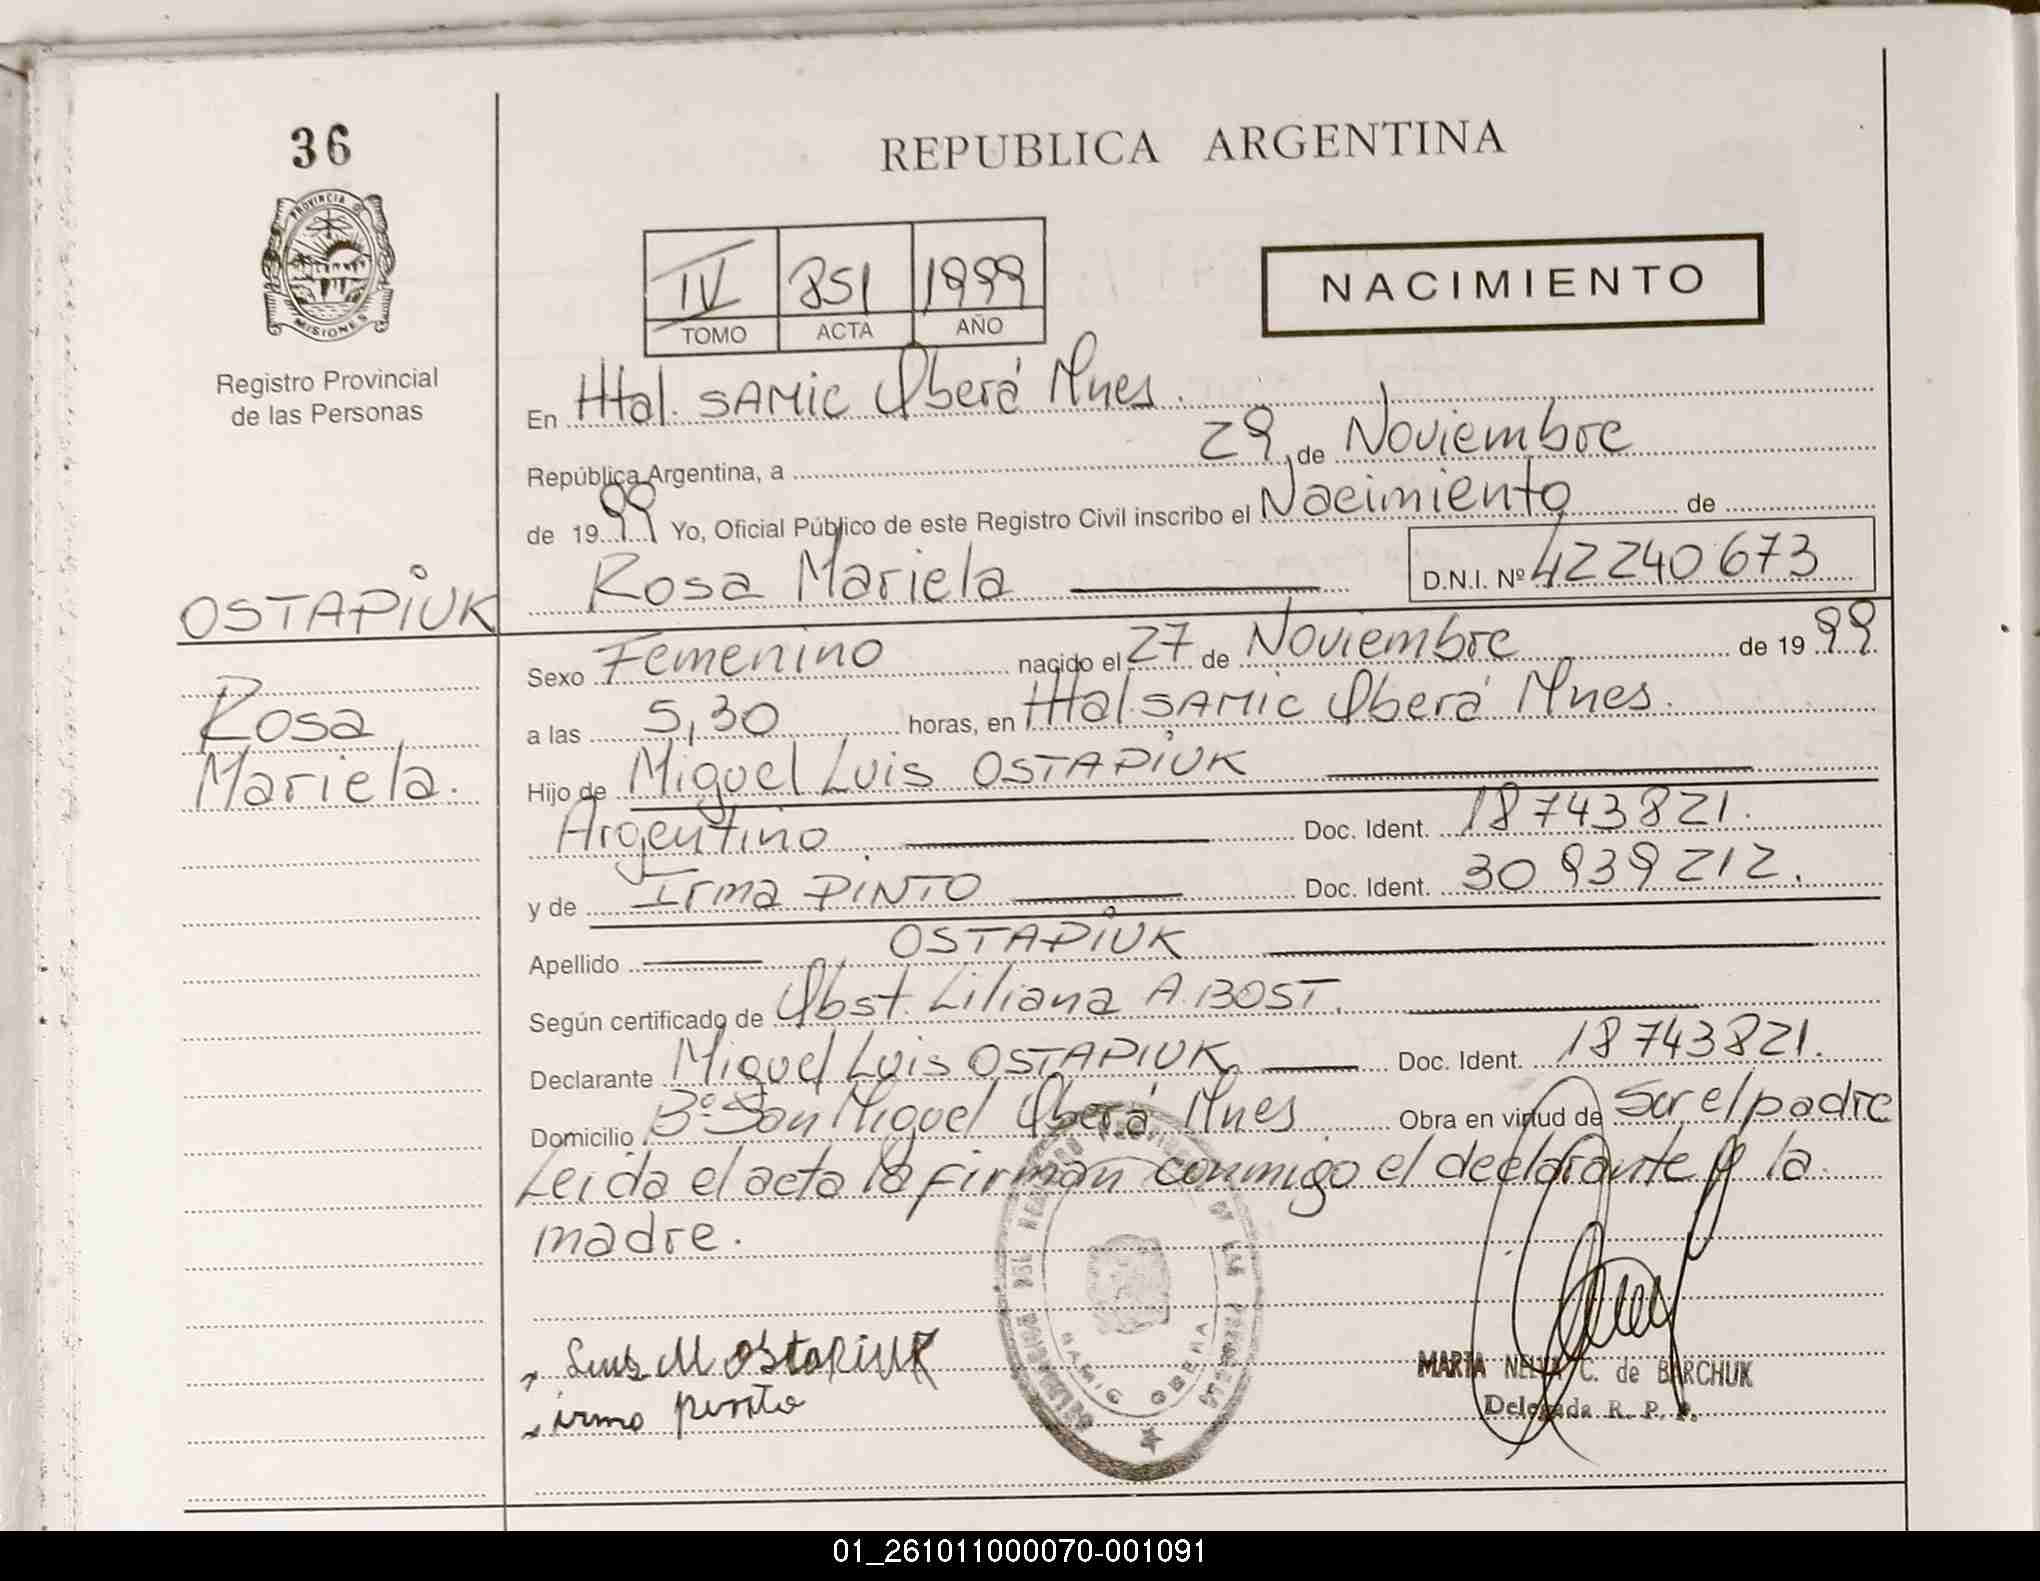 36
REPUBLICA ARGENTINA
PROVINCIA D
MISIONES
IV 851 1999
TOMO ACTA AÑO
NACIMIENTO
Registro Provincial
de las Personas
En Htal. SAMIC Oberá Mnes.
República Argentina, a 29 de Noviembre
de 1999 Yo, Oficial Público de este Registro Civil inscribo el Nacimiento de
Rosa Mariela D.N.I. Nº 42240673
OSTAPIUK
Rosa
Mariela.
Sexo Femenino nacido el 27 de Noviembre de 1999
a las 5,30 horas, en Htal SAMIC Oberá Mnes.
Hijo de Miguel Luis OSTAPIUK
Argentino Doc. Ident. 18743821.
y de Irma PINTO Doc. Ident. 30939212.
Apellido OSTAPIUK
Según certificado de Obst. Liliana A. BOST.
Declarante Miguel Luis OSTAPIUK Doc. Ident. 18743821.
Domicilio Bº San Miguel Oberá Mnes Obra en virtud de Ser el padre
Leida el acta la firman conmigo el declarante y la
madre.
Luis M OStaPiUK
irma pinto
SAMIC OBERA
MARIA NELVA C. de BARCHUK
Delegada R. P. P.
01_261011000070-001091